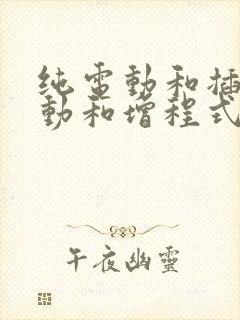 纯電動和插
動和增程式
午夜幽靈